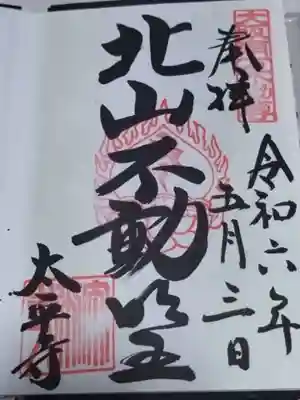 奉拝
令和六年
五月三日
北山不動明王
太平寺